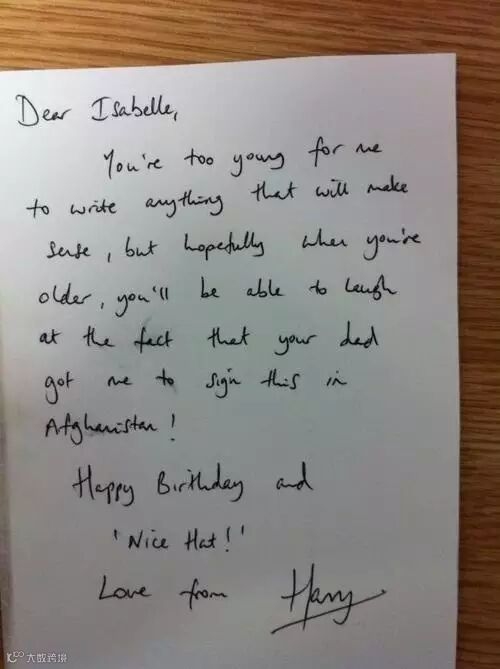 Dear Isabelle,
You're too young for me
to write anything that will make
sense, but hopefully when you're
older, you'll be able to laugh
at the fact that your dad
got me to sign this in
Afghanistan!
Happy Birthday and
'Nice Hat!'
Love from Harry
大数跨境